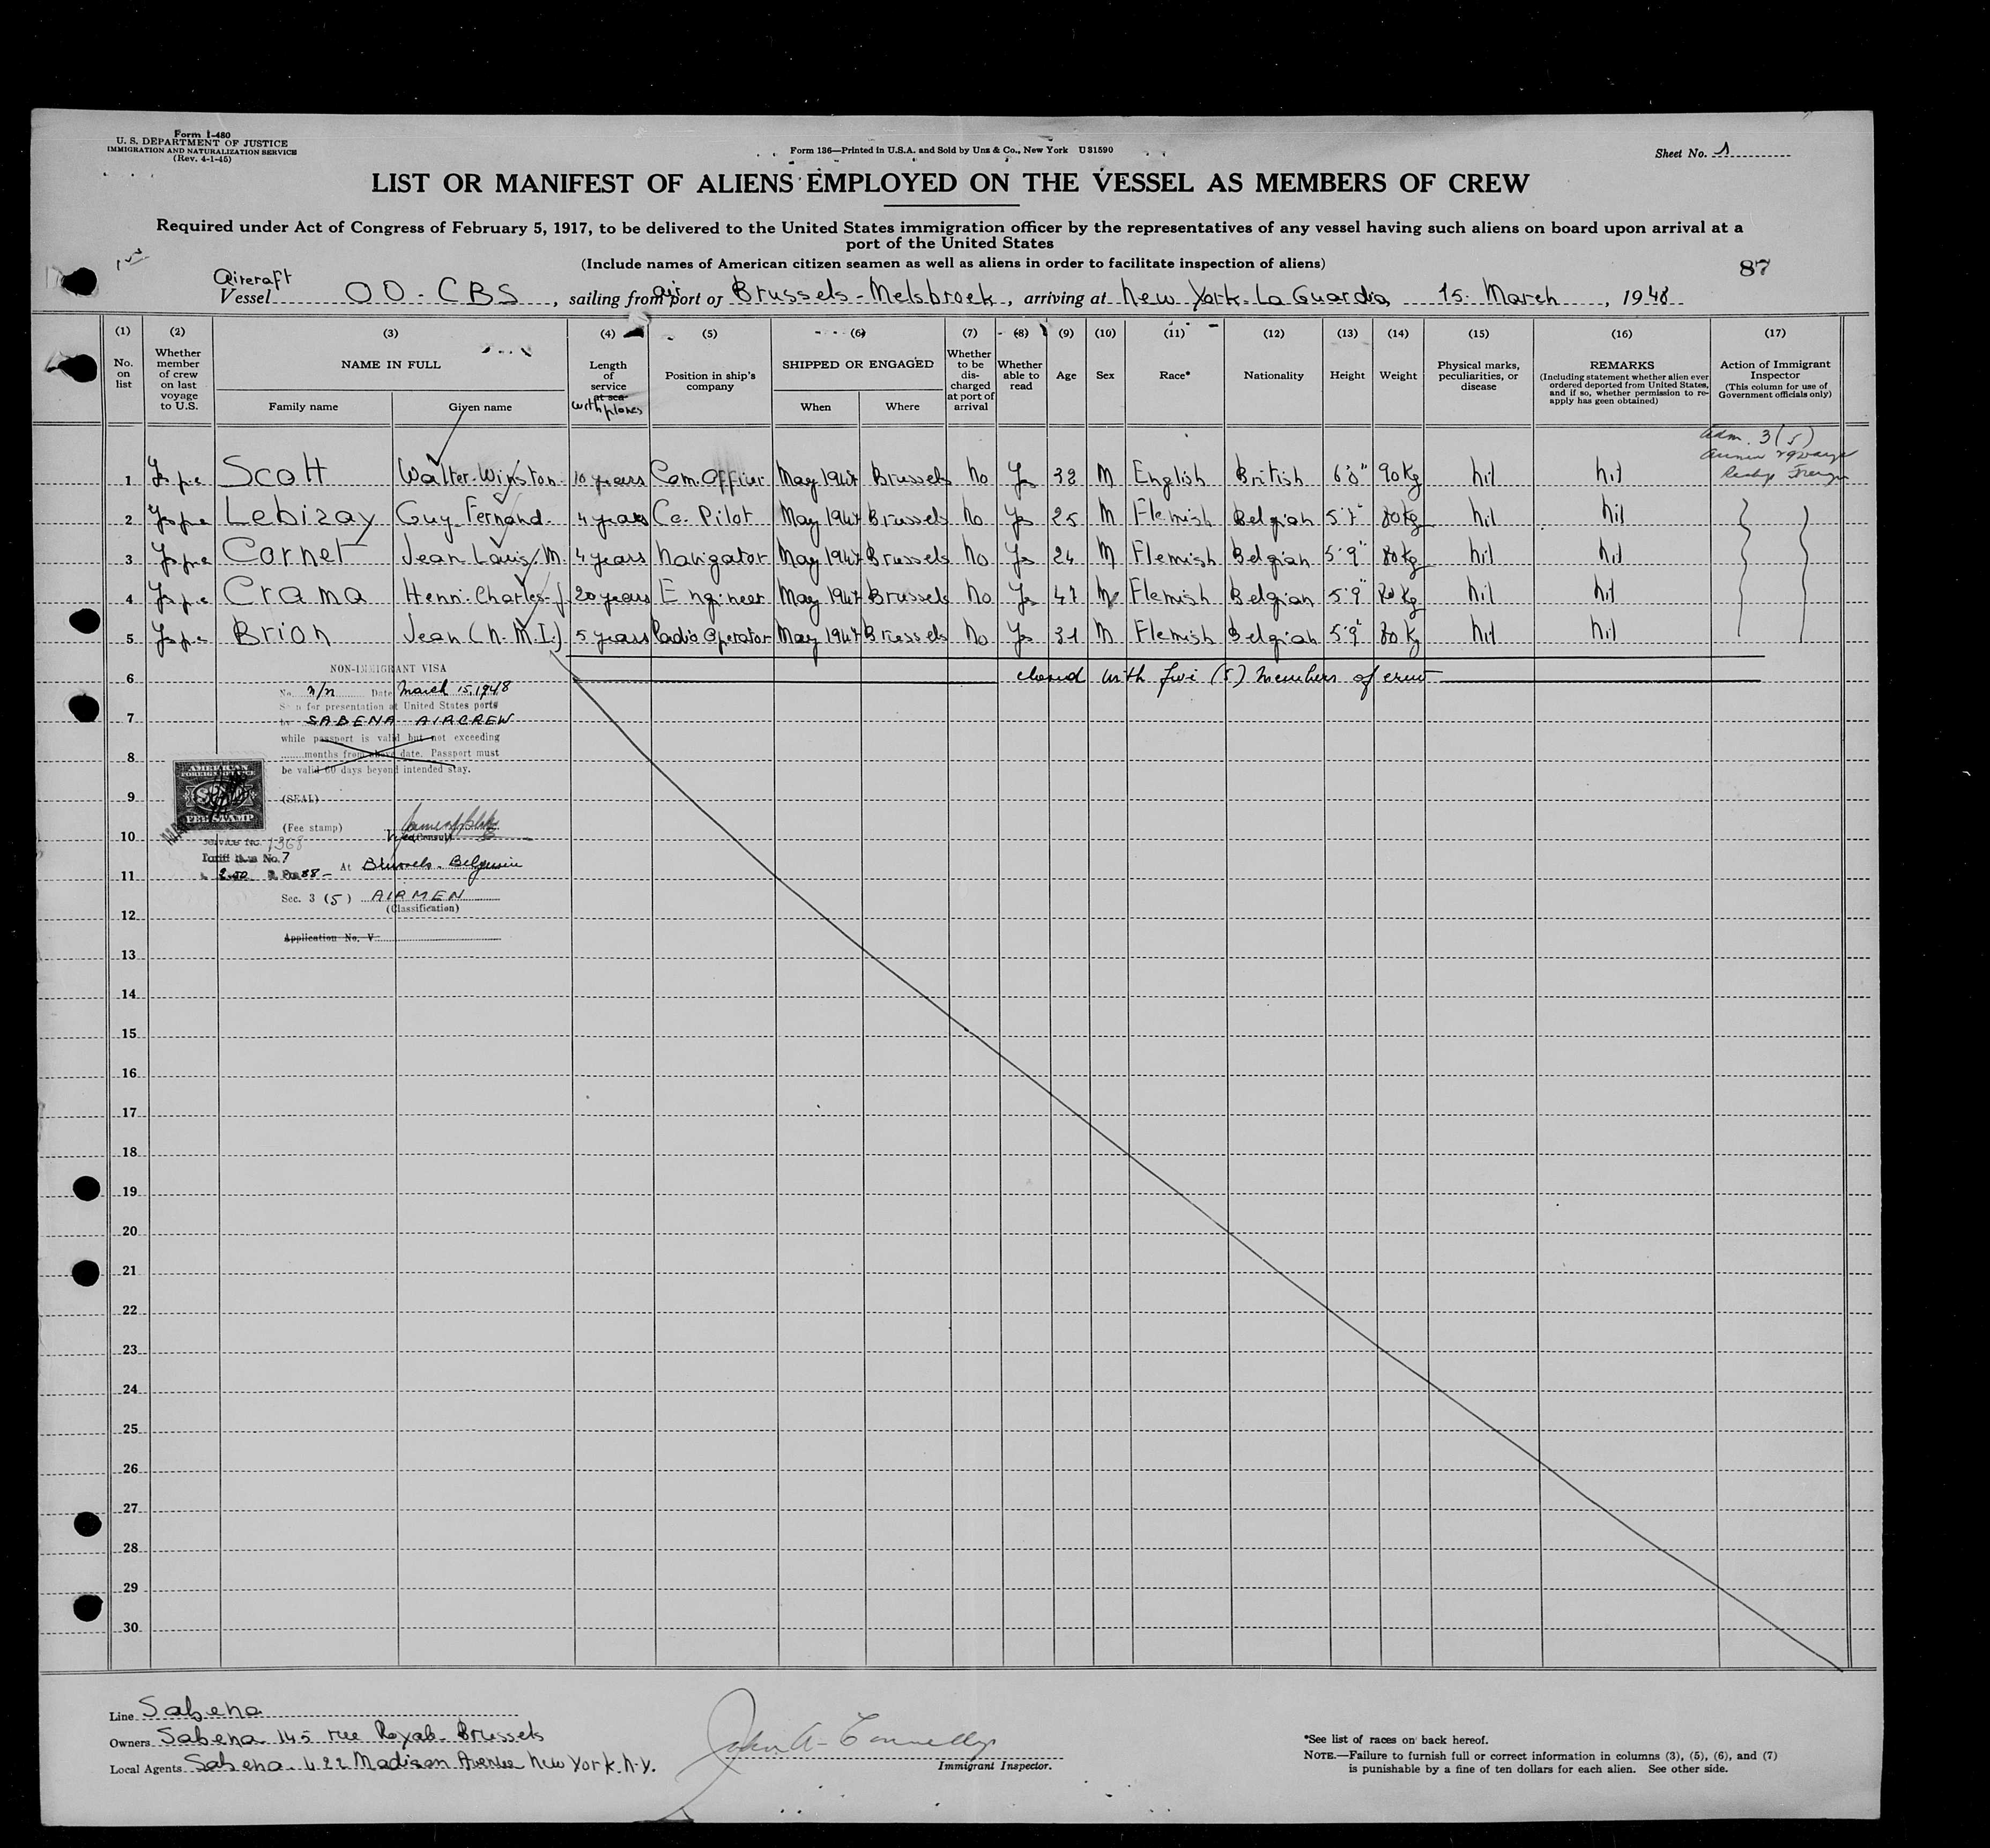 Form I-480
U. S. DEPARTMENT OF JUSTICE
IMMIGRATION AND NATURALIZATION SERVICE
(Rev. 4-1-45)
Form 136—Printed in U.S.A. and Sold by Unz & Co., New York U31590
Sheet No. 1
LIST OR MANIFEST OF ALIENS EMPLOYED ON THE VESSEL AS MEMBERS OF CREW
Required under Act of Congress of February 5, 1917, to be delivered to the United States immigration officer by the representatives of any vessel having such aliens on board upon arrival at a
port of the United States
(Include names of American citizen seamen as well as aliens in order to facilitate inspection of aliens)
87
Aircraft
Vessel OO-CBS, sailing from air port of Brussels-Melsbroek, arriving at New York-La Guardia, 15 March, 1948
(1) (2) (3) (4) (5) (6) (7) (8) (9) (10) (11) (12) (13) (14) (15) (16) (17)
No. on list
Whether member of crew on last voyage to U.S.
NAME IN FULL
Family name Given name
Length of service at sea with planes
Position in ship's company
SHIPPED OR ENGAGED
When Where
Whether to be discharged at port of arrival
Whether able to read
Age
Sex
Race*
Nationality
Height
Weight
Physical marks, peculiarities, or disease
REMARKS
(Including statement whether alien ever ordered deported from United States, and if so, whether permission to re-apply has geen obtained)
Action of Immigrant Inspector
(This column for use of Government officials only)
Adm. 3(5)
1 Scott Walter-Winston 10 years Com. Officer May 1947 Brussels No Yes 32 M English British 6'0" 90 Kg nil nil
2 Lebizay Guy Fernand 4 years Co. Pilot May 1947 Brussels No Yes 25 M Flemish Belgian 5'7" 80 kg nil nil
3 Cornet Jean Louis. M. 4 years Navigator May 1947 Brussels No Yes 24 M Flemish Belgian 5'9" 80 kg nil nil
4 Crama Henri-Charles-J. 20 years Engineer May 1947 Brussels No Yes 47 M Flemish Belgian 5'9" 80 Kg nil nil
5 Brion Jean (N.M.I.) 5 years Radio Operator May 1947 Brussels No Yes 31 M Flemish Belgian 5'9" 80 Kg nil nil
6 closed with five (5) members of crew
7
8
9
10
11
12
13
14
15
16
17
18
19
20
21
22
23
24
25
26
27
28
29
30
NON-IMMIGRANT VISA
No. n/n Date March 15, 1948
for presentation at United States ports
by SABENA AIRCREW
while passport is valid but not exceeding
months from above date. Passport must
be valid 60 days beyond intended stay.
(SEAL)
AMERICAN
FOREIGN SERVICE
FEE STAMP
(Fee stamp)
Vice Consul
Service No. 1368
Tariff Item No. 7
At Brussels-Belgium
Sec. 3 (5) AIRMEN
(Classification)
Application No. V
Line Sabena
Owners Sabena 145 rue Royale Brussels
Local Agents Sabena 422 Madison Avenue New York. N.Y.
John A. Connelly
Immigrant Inspector.
*See list of races on back hereof.
NOTE.—Failure to furnish full or correct information in columns (3), (5), (6), and (7)
is punishable by a fine of ten dollars for each alien. See other side.